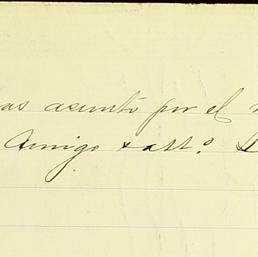 as asunto por el
Amigo + att.º